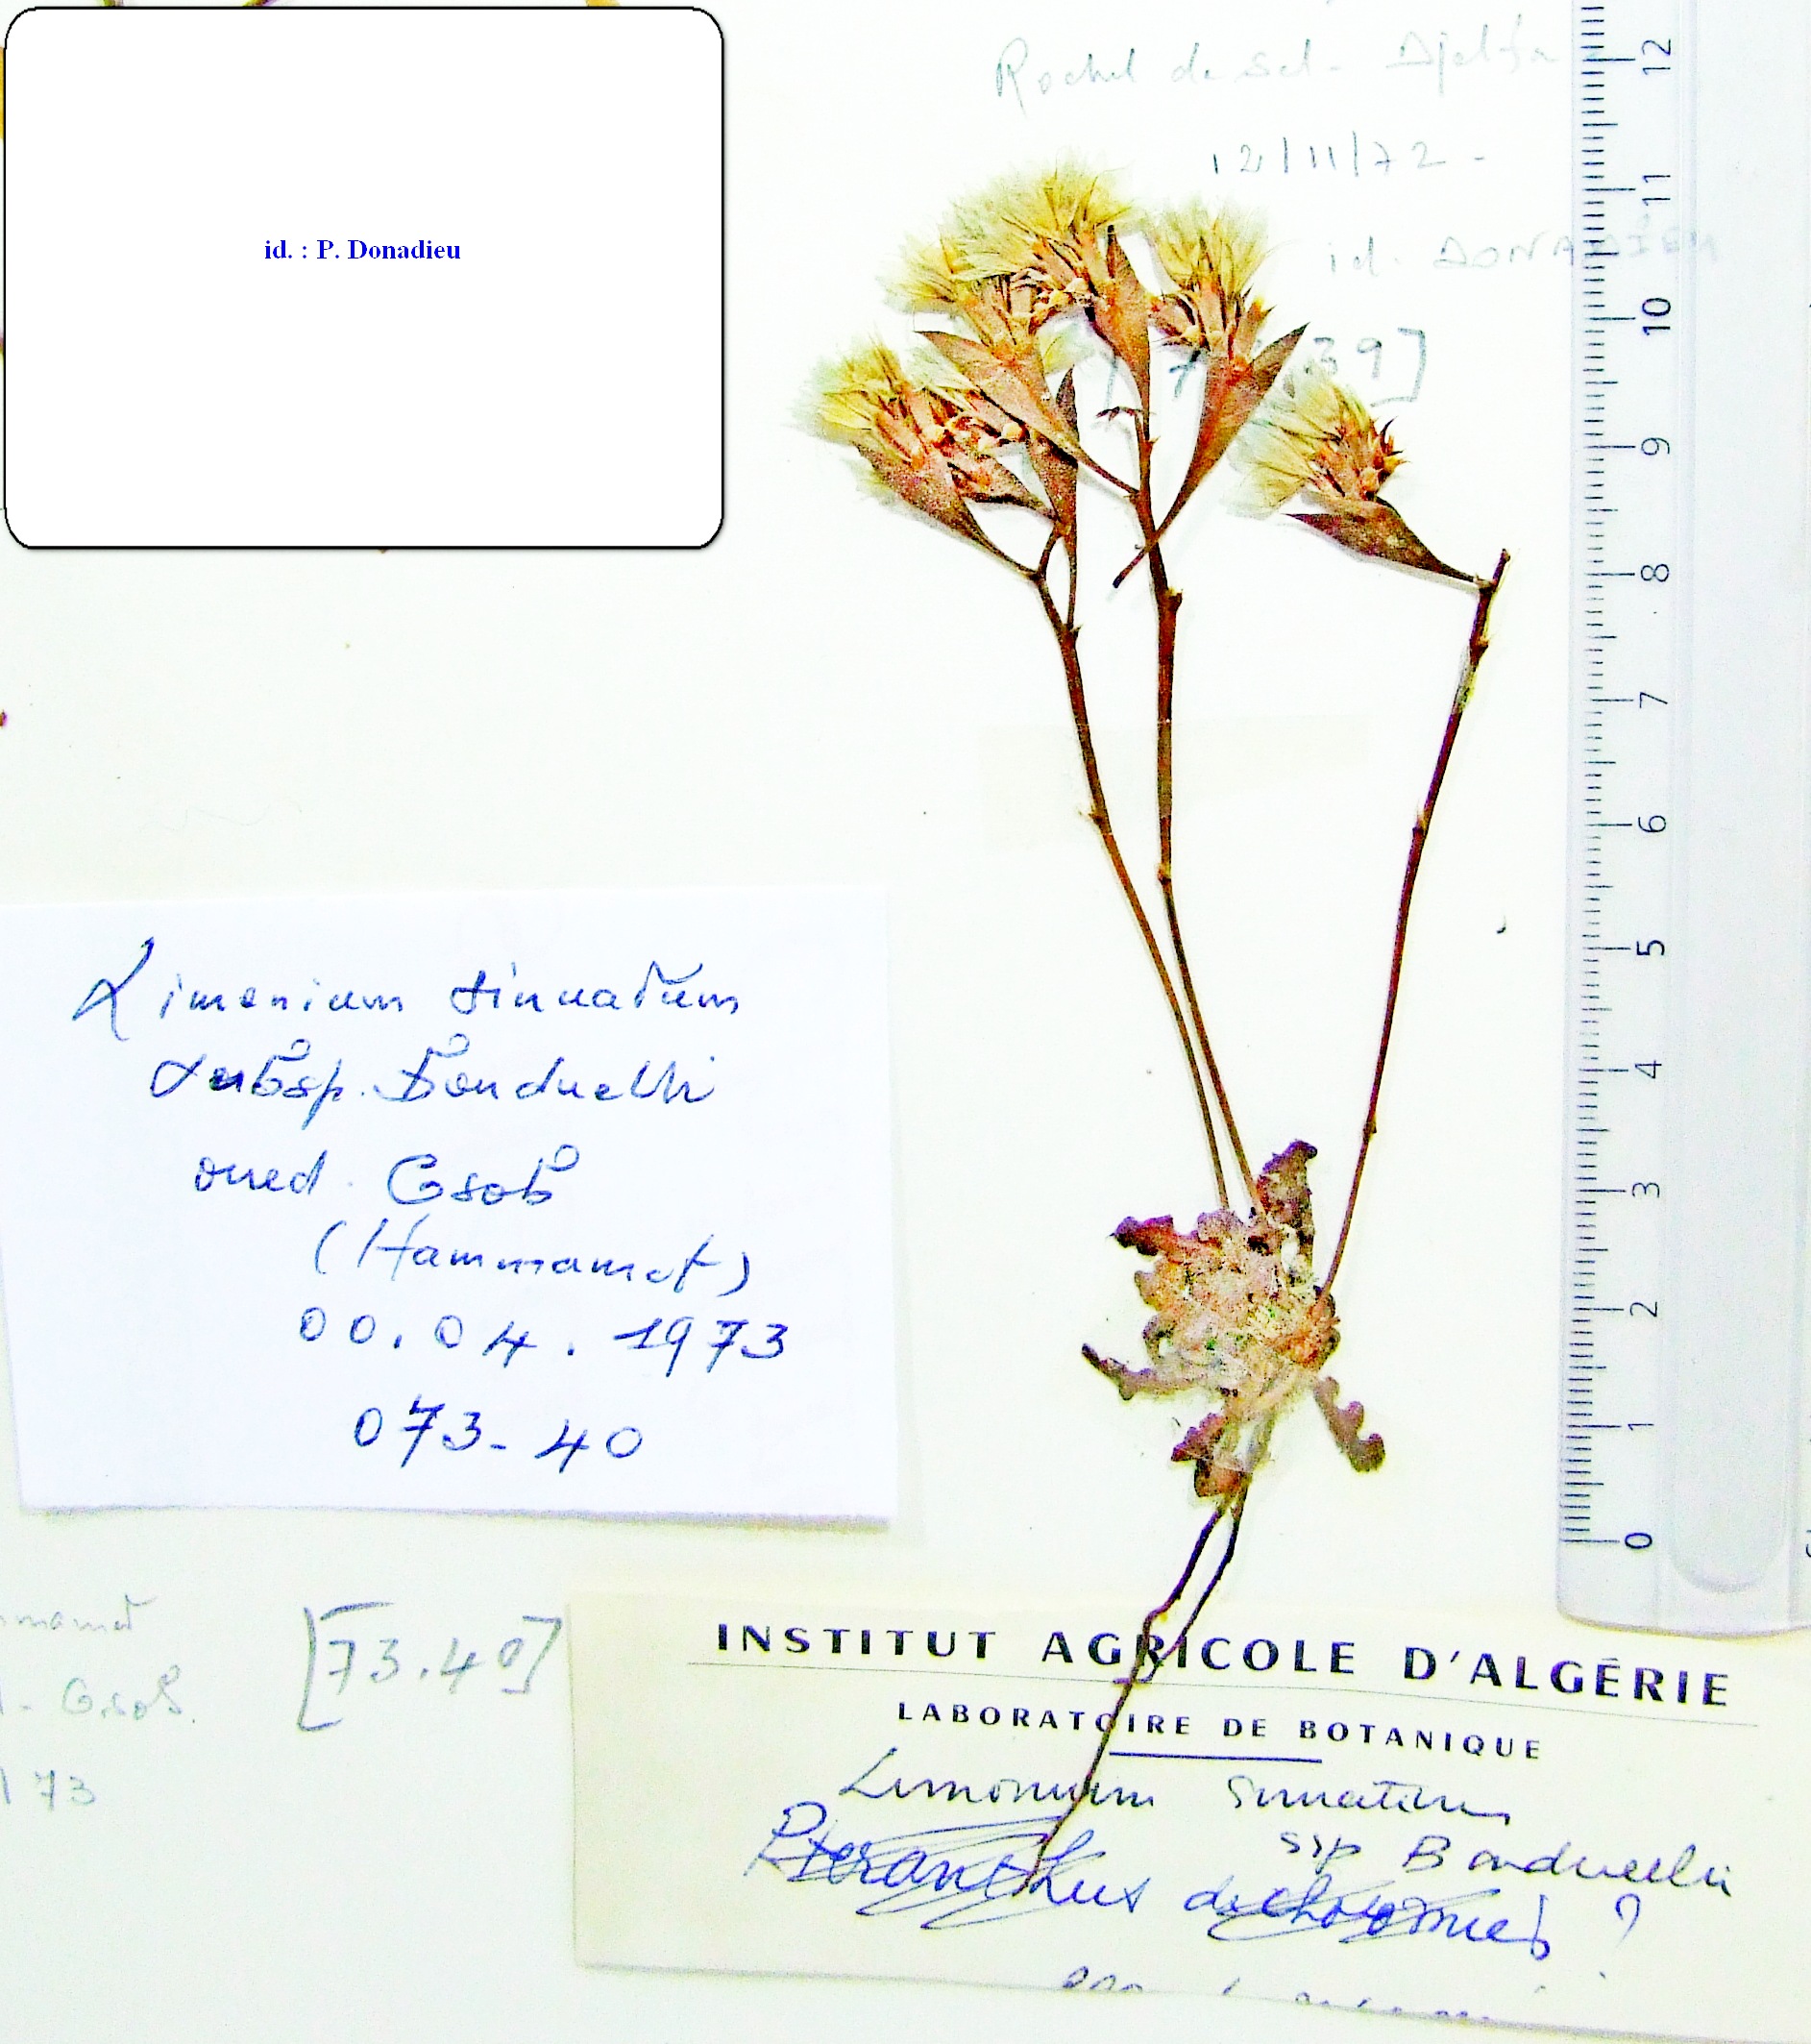 id. : P. Donadieu
Rocher de sel - Djelfa
12/11/72 -
id. DONADIEU
7 39]
12
11
10
9
8
7
6
5
4
3
2
1
0
Limonium sinuatum
subsp. Bonduelli
oued. Gsob
(Hammamet)
00.04.1973
073-40
mamet
- Gsob.
[73.40]
/73
INSTITUT AGRICOLE D'ALGÉRIE
LABORATOIRE DE BOTANIQUE
Limonium sinuatum
ssp Bonduelli
Pteranthus dichotomus ?